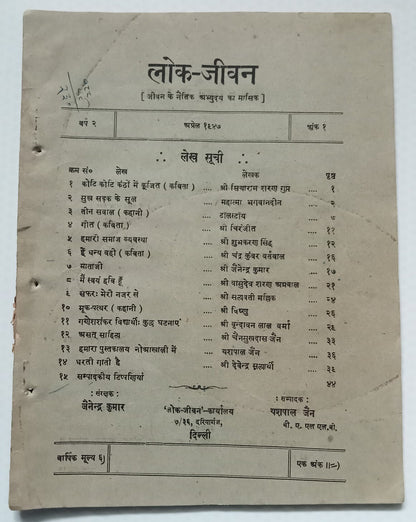 लोक-जीवन
[ जीवन के नैतिक अभ्युदय का मासिक ]
वर्ष २ अप्रेल १९४७ अंक १
लेख सूची
क्रम सं० लेख लेखक पृष्ठ
१ कोटि कोटि कंठों में कूजित ( कविता ) .... श्री सियाराम शरण गुप्त .... १
२ सुख सड़क के सूल .... महात्मा भगवानदीन .... २
३ तीन सवाल ( कहानी ) .... टाल्सटॉय .... ७
४ गीत ( कविता ) .... श्री चिरंजीत .... १२
५ हमारी समाज व्यवस्था .... श्री शुभकरण सिंह .... १२
६ हैं धन्य वही ( कविता ) .... श्री चंद्र कुंवर वर्तवाल .... १६
७ माताजी .... श्री जैनेन्द्र कुमार .... १७
८ मैं स्वयं हवि हूँ .... श्री वासुदेव शरण अग्रवाल .... २१
९ सफर: मेरी नजर से .... श्री सत्यवती मल्लिक .... २४
१० मूक-पत्थर ( कहानी ) .... श्री विष्णु .... २६
११ गणेशशंकर विद्यार्थी: कुछ घटनाएं .... श्री वृन्दावन लाल वर्मा .... २६
१२ असत् साहित्य .... श्री चैनसुखदास जैन .... ३३
१३ हमारा पुस्तकालय नोआखाली में .... यशपाल जैन .... ३६
१४ धरती गाती है .... श्री देवेन्द्र सत्यार्थी .... ३६
१५ सम्पादकीय टिप्पणियां ४४
: संरक्षक :
जैनेन्द्र कुमार
'लोक-जीवन'-कार्यालय
७/३६, दरियागंज,
दिल्ली
: सम्पादक :
यशपाल जैन
बी. ए., एल एल. बी.
वार्षिक मूल्य ६) एक अंक ॥=)